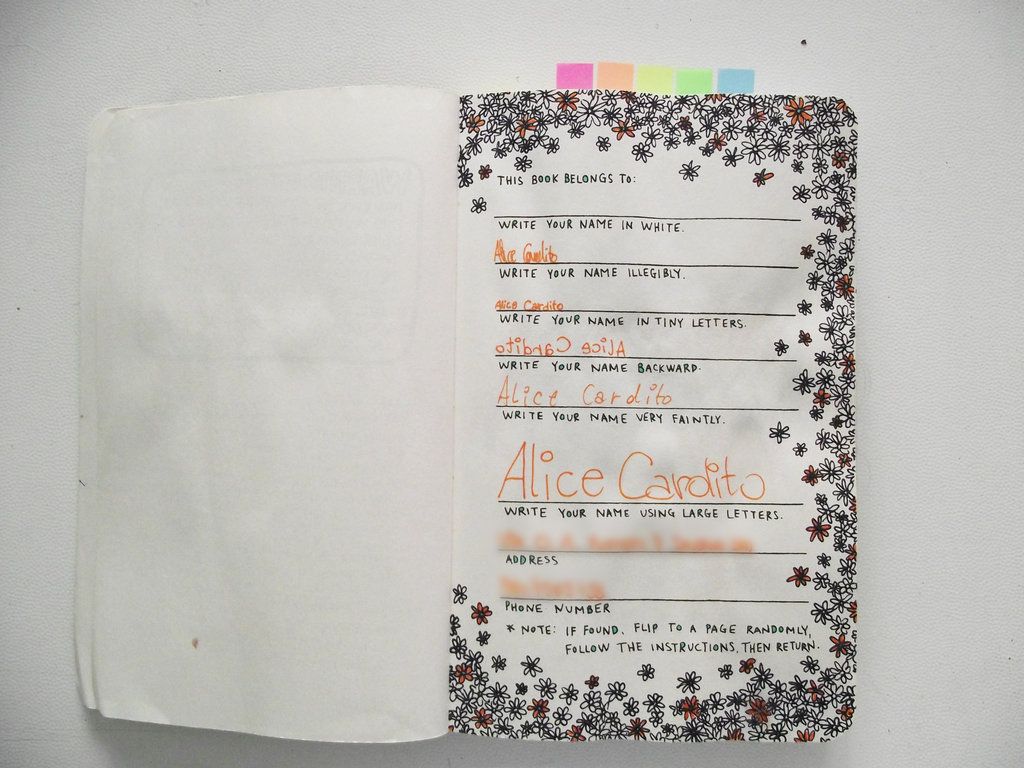 THIS BOOK BELONGS TO:
WRITE YOUR NAME IN WHITE.
Alice Cardito
WRITE YOUR NAME ILLEGIBLY.
Alice Cardito
WRITE YOUR NAME IN TINY LETTERS.
Alice Cardito
WRITE YOUR NAME BACKWARD.
Alice Cardito
WRITE YOUR NAME VERY FAINTLY.
Alice Cardito
WRITE YOUR NAME USING LARGE LETTERS.
ADDRESS
PHONE NUMBER
* NOTE: IF FOUND, FLIP TO A PAGE RANDOMLY,
FOLLOW THE INSTRUCTIONS, THEN RETURN.